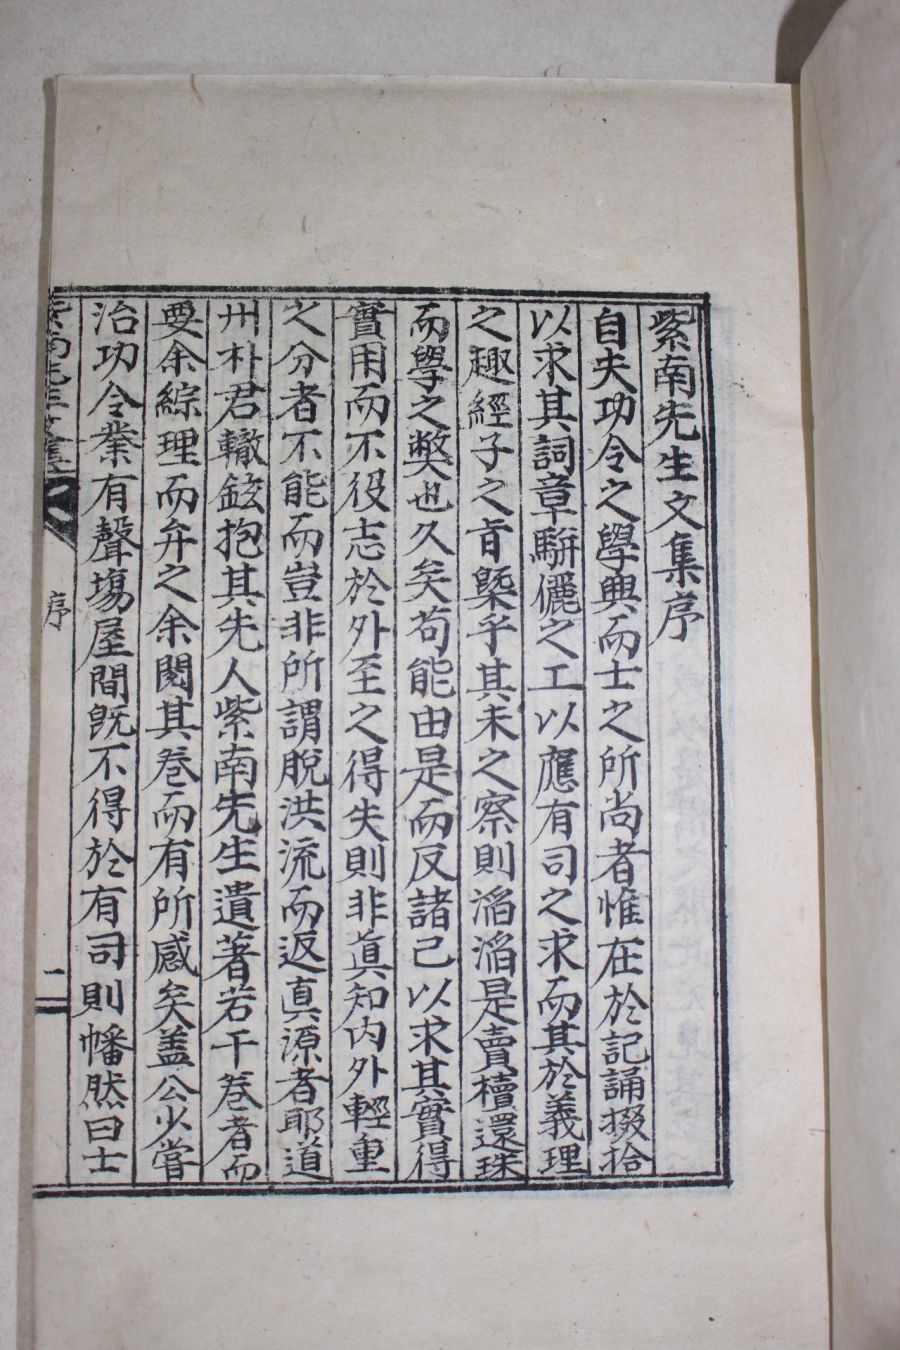 紫南先生文集序
自夫功令之學興而士之所尚者惟在於記誦掇拾
以求其詞章騈儷之工以應有司之求而其於義理
之趣經子之旨槩乎其未之察則滔滔是賣櫝還珠
而學之獘也久矣苟能由是而反諸己以求其實得
實用而不役志於外至之得失則非眞知內外輕重
之分者不能而豈非所謂脫洪流而返眞源者耶道
州朴君轍鉉抱其先人紫南先生遺著若干卷者而
要余綜理而弁之余閱其卷而有所感矣盖公少嘗
治功令業有聲塲屋間旣不得於有司則幡然曰士
紫南先生文集
序
二